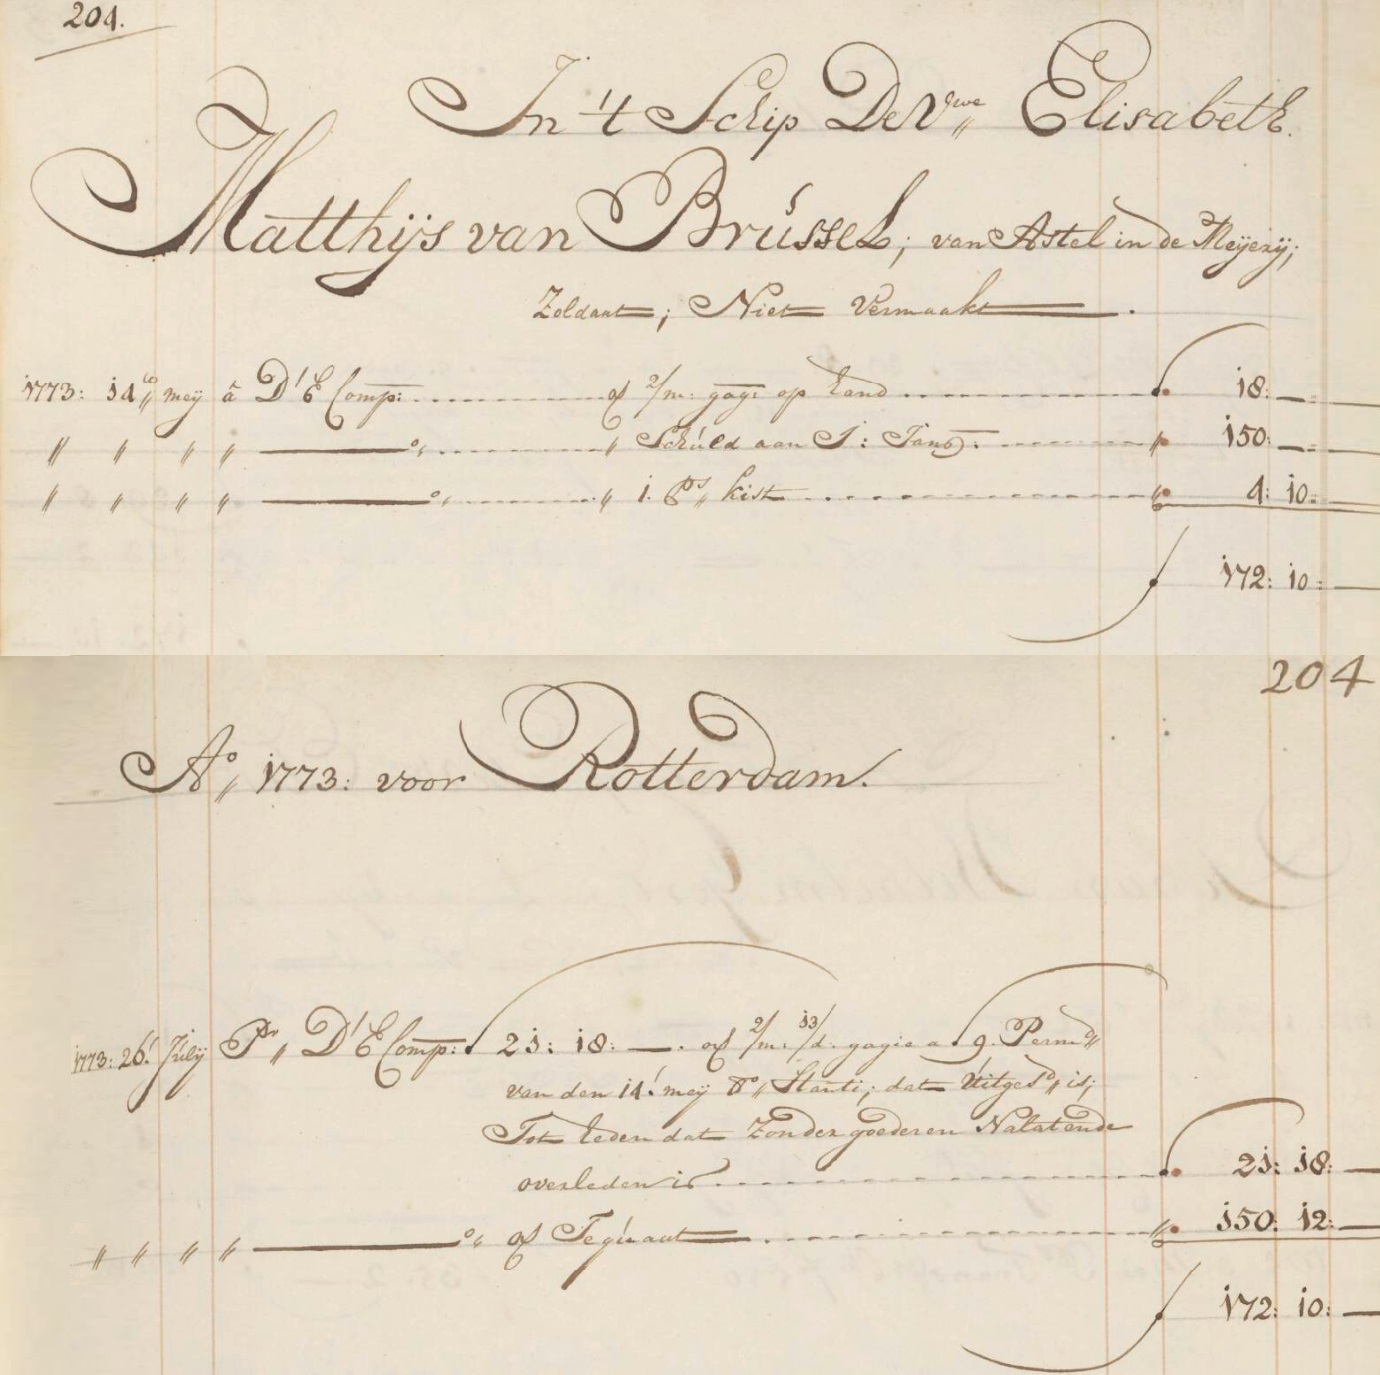 204.
In 't Schip De Vwe Elisabeth.
Matthijs van Brússel; van Astel in de Meijerij;
Zoldaat; Niet Vermaakt.
1773: 14 meij â D'E Comp: 2/m: gag: op hand 18:
" " " " o" " Schúld aan I: Jans: " 150:
" " " " o" " 1. Ps" kist " 4: 10:
172: 10:
204
Ao" 1773: voor Rotterdam.
1773: 26' Júlij Pr" D'E Comp: 21: 18: 2/m: 13/d. gagie a 9. Perm
van den 14' meij Ao" Stanti; dat Uitges is;
Tot heden dat Zonder goederen Nalatende
overleden is 21: 18:
" " " " o" Tegúaat " 150: 12:
172: 10: